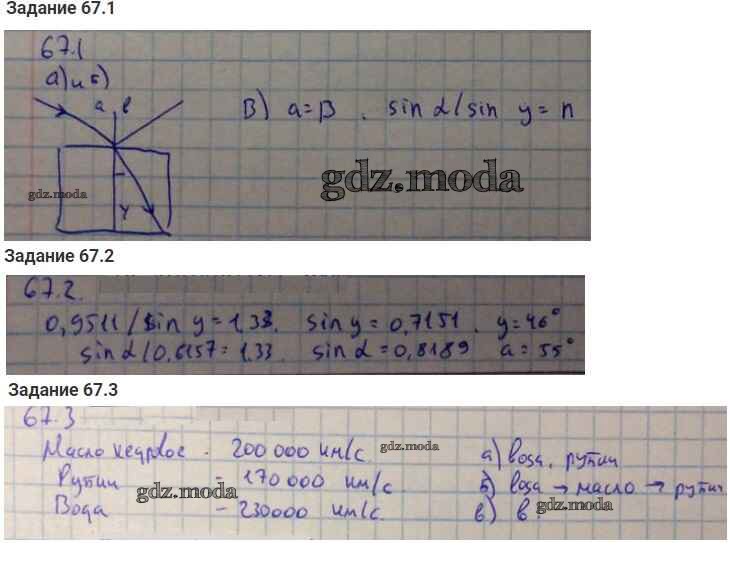 Задание 67.1
67.1
а) и б)
а β
γ
В) α = β . sin α / sin γ = n
gdz.moda
gdz.moda
Задание 67.2
67.2.
0,9511 / sin γ = 1,33. sin γ = 0,7151. γ = 46°
sin α / 0,6157 = 1.33. sin α = 0,8189 α = 55°
Задание 67.3
67.3
Масло кедровое - 200 000 км/с.
Рутил - 170 000 км/с.
Вода - 230000 км/с.
а) вода, рутил
б) вода → масло → рутил
в) в.
gdz.moda
gdz.moda
gdz.moda